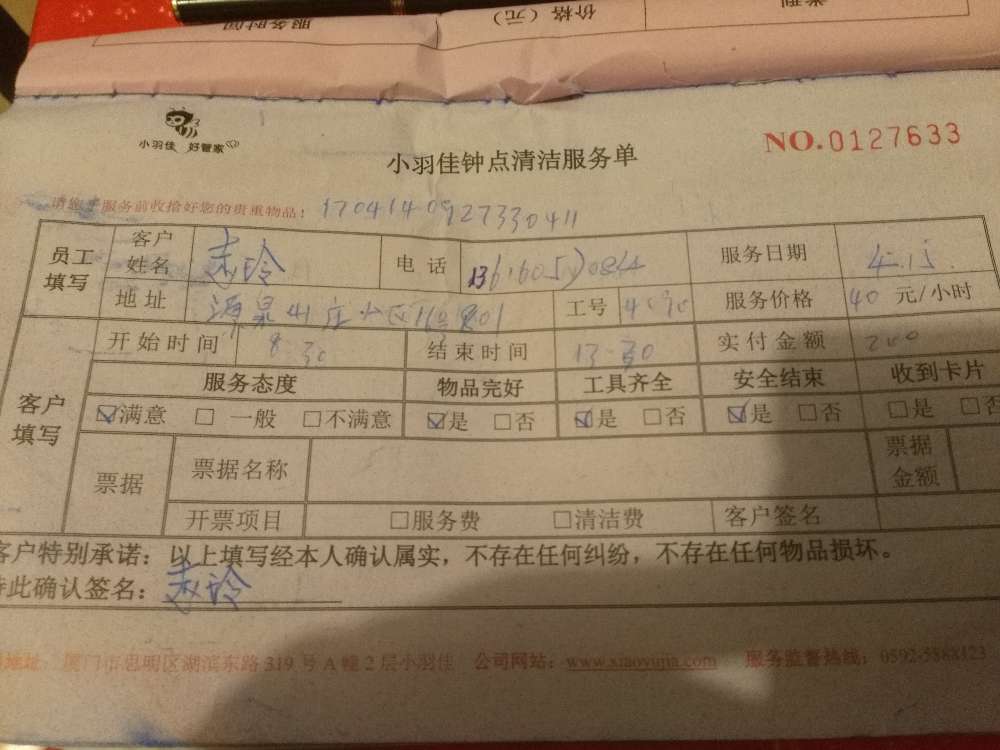 服务时间 价格（元） 类型
小羽佳 好管家
小羽佳钟点清洁服务单
NO.0127633
请您于服务前收拾好您的贵重物品！ 1704140927330411
员工填写 客户姓名 玲 电话 服务日期 4.15
地址 源泉山庄小区 工号 服务价格 40 元/小时
客户填写 开始时间 8:30 结束时间 13:30 实付金额 200
服务态度 物品完好 工具齐全 安全结束 收到卡片
☑满意 □一般 □不满意 ☑是 □否 ☑是 □否 ☑是 □否 □是 □否
票据 票据名称 票据金额
开票项目 □服务费 □清洁费 客户签名
客户特别承诺：以上填写经本人确认属实，不存在任何纠纷，不存在任何物品损坏。
特此确认签名： 玲
地址：厦门市思明区湖滨东路319号A幢2层小羽佳 公司网站：www.xiaoyujia.com 服务监督热线：0592-5888123